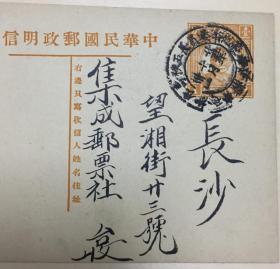 中華民國郵政明信
長沙
望湘街廿三號
集成郵票社 台啟
右邊只寫收信人姓名住址